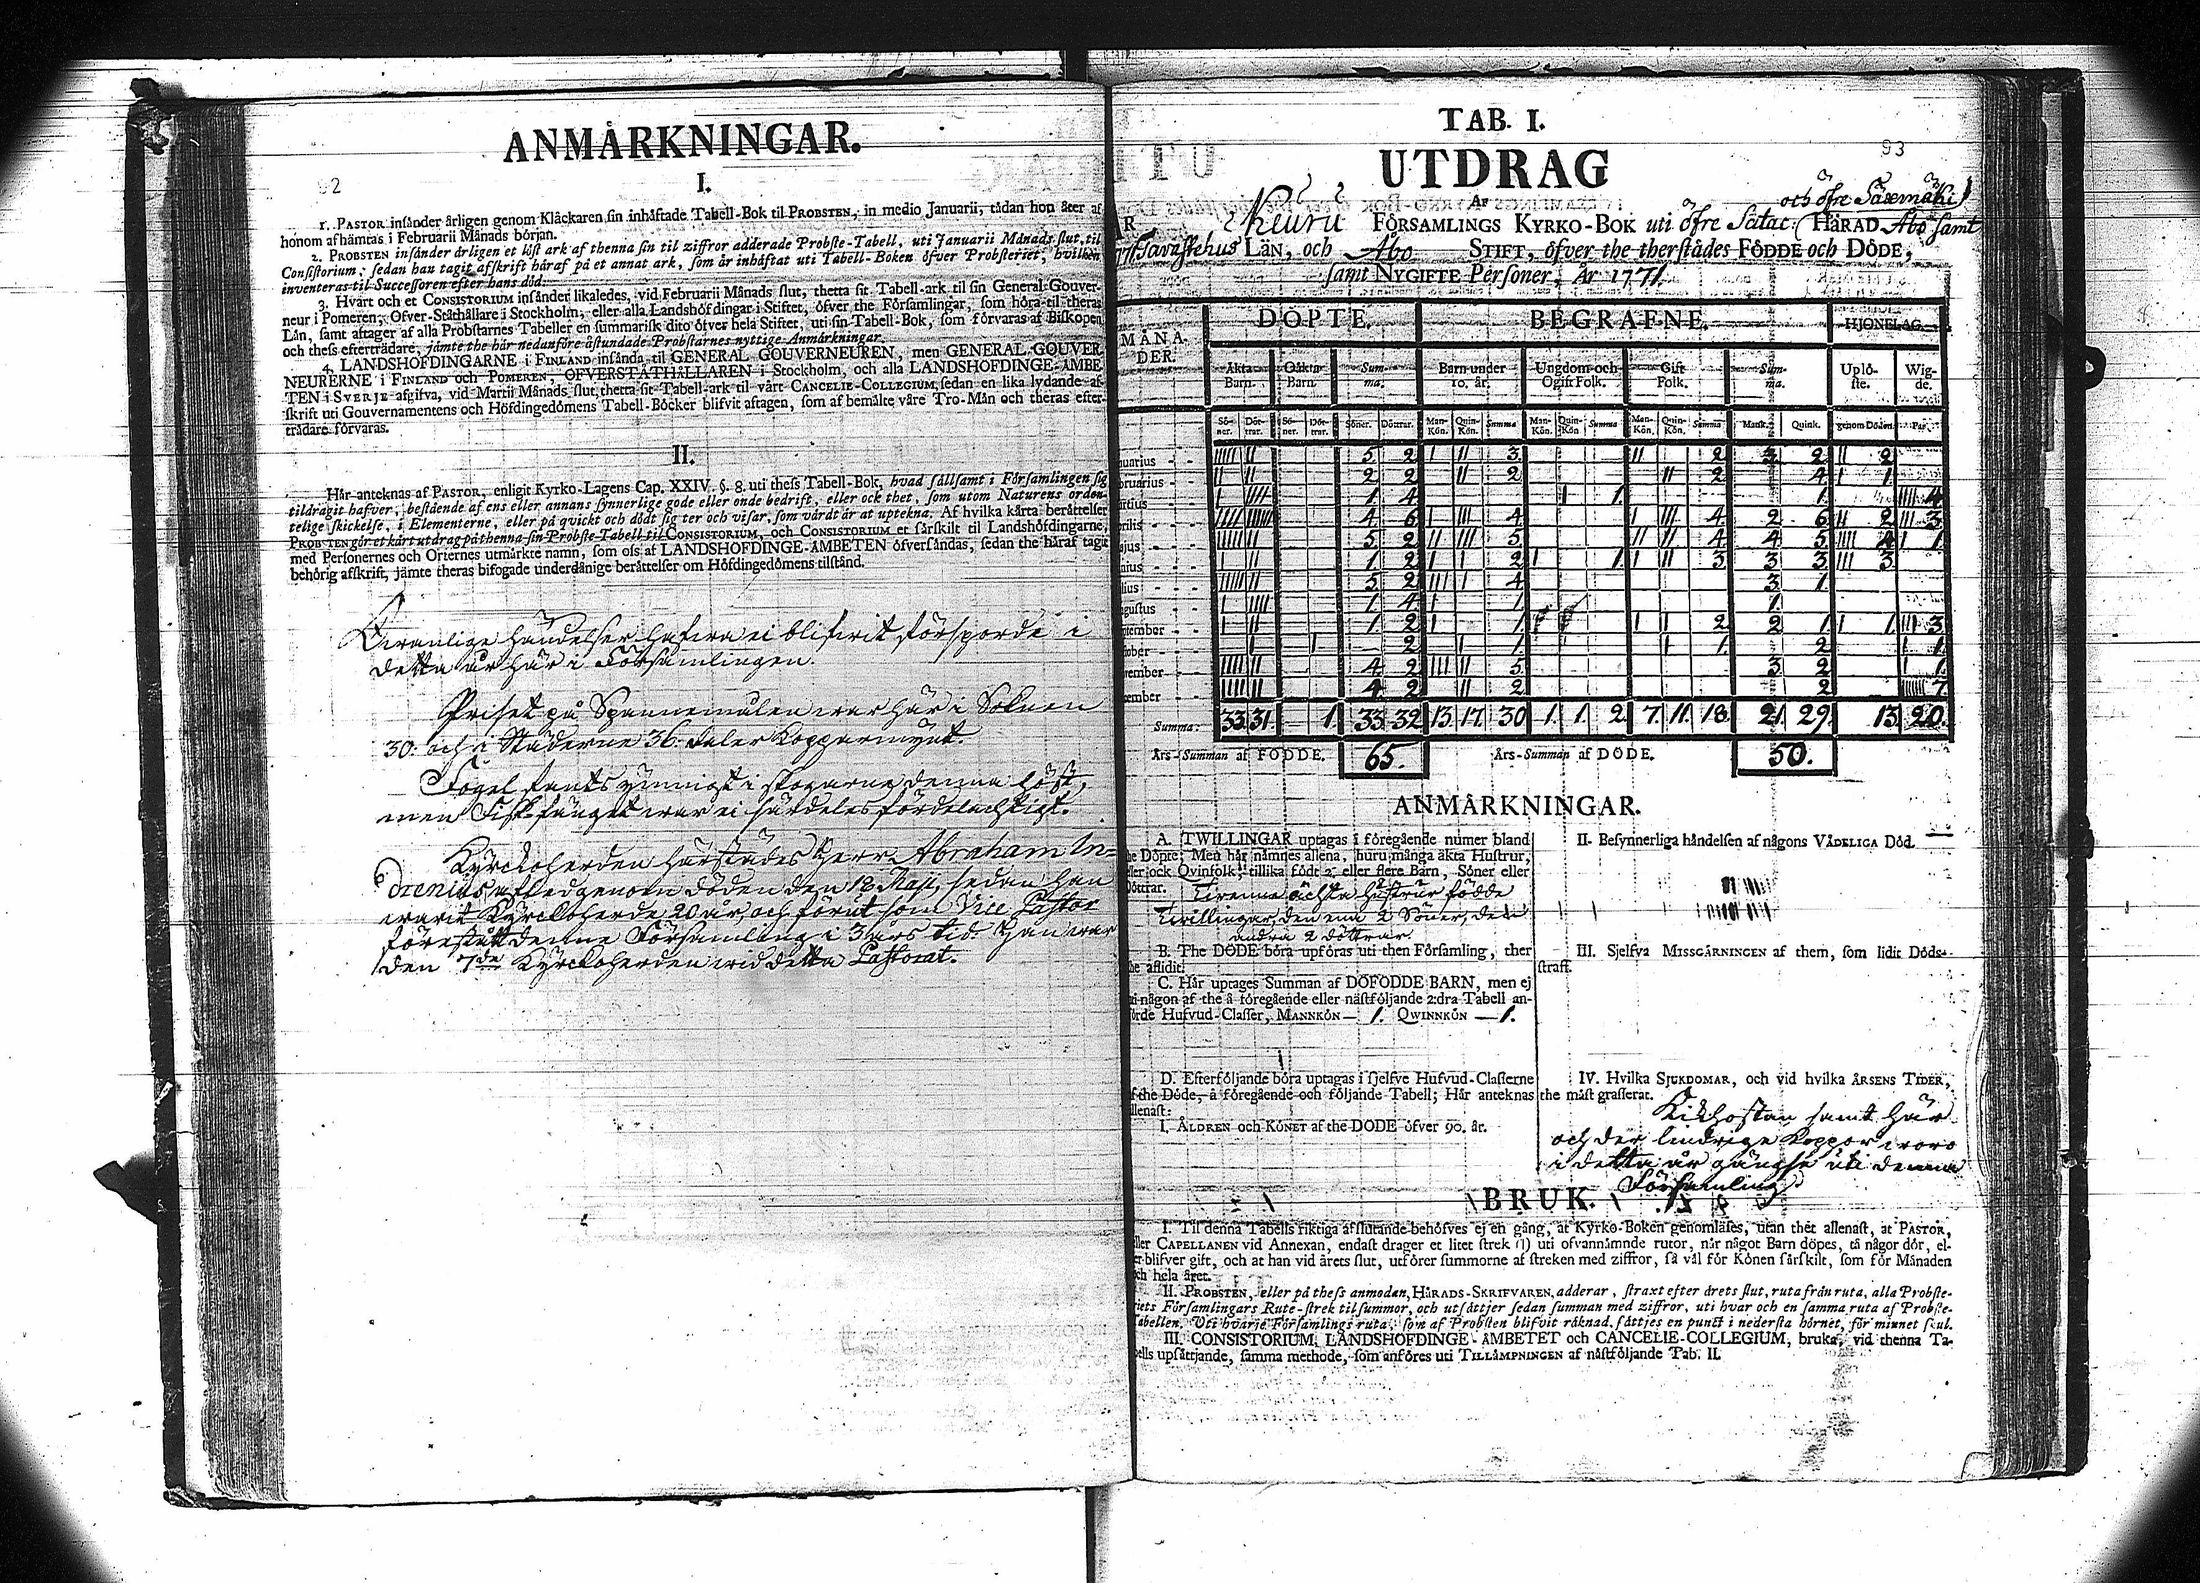 ANMÄRKNINGAR.
92
I.
1. PASTOR insånder årligen genom Klåckaren sin inhäftade Tabell-Bok til PROBSTEN, in medio Januarii, tådan hon åter af
honom afhämtas i Februarii Månads början.
2. PROBSTEN insånder årligen et löst ark af thenna sin til ziffror adderade Probste-Tabell, uti Januarii Månads slut, til
Consistorium; sedan han tagit afskrift häraf på et annat ark, som är inhäftat uti Tabell-Boken öfver Probsteriet, hvilken
inventeras til Successoren efter hans död.
3. Hvart och et CONSISTORIUM insånder likaledes, vid Februarii Månads slut, thetta sit Tabell-ark til sin General-Gouver-
neur i Pomeren, Öfver-Ståthållare i Stockholm, eller alla Landshöfdingar i Stiftet, öfver the Församlingar, som höra til theras
Län, samt aftager af alla Probstarnes Tabeller en summarisk dito öfver hela Stiftet, uti sin Tabell-Bok, som förvaras af Biskopen
och thess efterträdare, jämte the här nedanföre åstundade Probstarnes nyttige Anmärkningar.
4. LANDSHÖFDINGARNE i FINLAND insånda til GENERAL GOUVERNEUREN, men GENERAL GOUVER-
NEURERNE i FINLAND och POMEREN, ÖFVERSTÅTHÅLLAREN i Stockholm, och alla LANDSHÖFDINGE-ÄMBE-
TEN i SVERJE afgifva, vid Martii Månads slut, thetta sit Tabell-ark til vårt CANCELIE-COLLEGIUM, sedan en lika lydande af-
skrift uti Gouvernamentens och Höfdingedömens Tabell-Böcker blifvit aftagen, som af bemälte våre Tro-Män och theras efter-
trädare förvaras.
II.
Här anteknas af PASTOR, enligit Kyrko-Lagens Cap. XXIV. §. 8. uti thess Tabell-Bok, hvad sällsamt i Församlingen sig
tildragit hafver, bestående af ens eller annans synnerlige gode eller onde bedrift, eller ock thet, som utom Naturens orden-
telige skickelse, i Elementerne, eller på qvickt och dödt sig ter och visar, som värdt är at uptekna. Af hvilka kårta berättelser
PROBSTEN gör et kårt utdrag på thenna sin Probste-Tabell til CONSISTORIUM, och CONSISTORIUM et särskilt til Landshöfdingarne,
med Personernes och Orternes utmärkte namn, som oss af LANDSHÖFDINGE-ÄMBETEN öfversåndas, sedan the häraf tagit
behörig afskrift, jämte theras bifogade underdånige berättelser om Höfdingedömens tilstånd.
händelser hafwa ei blifwit försporde i
detta år här i Församlingen.
Priset på Spannemålen war här i Soknen
30. och i Städerne 36. daler Kopparmynt.
Fogel fants ymnigt i skogarne denna höst,
men Fisk-fänget war ei särdeles fördelachtigt.
Kyrckoherden härstädes Herr Abraham In-
drenius afled genom döden den 18 Maji, sedan han
warit Kyrckoherde 20 år och förut som Vice Pastor
förestått denne Församling i 3 års tid. Han war
den 7de Kyrckoherden wid detta Pastorat.
TAB. I.
93
UTDRAG
AF
och öfre Säxemäki
Keuru FÖRSAMLINGS KYRKO-BOK uti öfre Satac. HÄRAD Åbo samt
Tavastehus LÄN, och Åbo STIFT, öfver the therstädes FÖDDE och DÖDE,
samt NYGIFTE Personer, År 1771.
MÅNA-
DER.
DÖPTE. BEGRAFNE. HJONELAG.
Äkta Barn. Oäkta Barn. Summa. Barn under 10. år. Ungdom och Ogift Folk. Gift Folk. Summa. Uplöste. Wigde.
Söner. Döttrar. Söner. Döttrar. Söner. Döttrar. Man-Kön. Quin-Kön. Summa Man-Kön. Quin-Kön Summa Man-Kön. Quin-Kön. Summa Mank. Quink. genom Döden. Par.
nuarius - - 5 2 3 2 3 2 2
bruarius - - 2 2 2 2 4. 1.
rtius - - 1. 4. 1. 1. 4
prilis - - 4. 6. 4. 4. 2 6. 2. 3
ajus - - 5. 2 5. 4 4 5. 4. 1.
nius - - 1. 2 2 1. 3 3 3. 3.
lius - - 5. 2 4. 3 1.
gustus - - 1. 4. 1. 1.
ptember - - 1. 2 1. 2 2 1. 1. 3
tober - - 2 1. 1. 2 1.
vember - - 4. 2 5. 3 2 1.
cember - - 4. 2 2 2 7.
Summa: 33. 31. - 1. 33. 32. 13. 17. 30. 1. 1. 2. 7. 11. 18. 21. 29. 13. 20.
Års-Summan af FÖDDE. 65. Års-Summan af DÖDE. 50.
ANMÄRKNINGAR.
A. TWILLINGAR uptagas i föregående numer bland
he Döpte; Men här nämnes allena, huru många äkta Hustrur,
ller ock Qvinfolk, tillika födt 2. eller flere Barn, Söner eller
Döttrar.
Twenne ächta hustrur födde
Twillingar, den ena 2 Söner, den
andra 2 döttrar.
B. The DÖDE böra upföras uti then Församling, ther
he aflidit.
C. Här uptages Summan af DÖFÖDDE BARN, men ej
i någon af the å föregående eller nästföljande 2:dra Tabell an-
förde Hufvud-Classer, MANNKÖN — 1. QWINNKÖN — 1.
D. Efterföljande böra uptagas i sjelfve Hufvud-Classerne
f the Döde, å föregående och följande Tabell; Här anteknas
llenast:
I. ÅLDREN och KÖNET af the DÖDE öfver 90. år.
II. Besynnerliga händelsen af någons VÅDELIGA Död.
III. Sjelfva MISSGÄRNINGEN af them, som lidit Döds-
straff.
IV. Hvilka SJUKDOMAR, och vid hvilka ÅRSENS TIDER,
the mäst grasserat.
Kikhostan samt här
och der lindrige Koppor woro
i detta år gängse uti denna
Församling.
BRUK.
I. Til denna Tabells riktiga afslutande behöfves ej en gång, at Kyrko-Boken genomläses, utan thet allenast, at PASTOR,
ller CAPELLANEN vid Annexan, endast drager et litet strek (|) uti ofvannämnde rutor, när något Barn döpes, tå någor dör, el-
er blifver gift, och at han vid årets slut, utförer summorne af streken med ziffror, så väl för Könen särskilt, som för Månaden
ch hela året.
II. PROBSTEN, eller på thess anmodan, HÄRADS-SKRIFVAREN, adderar, straxt efter årets slut, ruta från ruta, alla Probste-
riets Församlingars Rute-strek til summor, och utsättjer sedan summan med ziffror, uti hvar och en samma ruta af Probste-
abellen. Uti hvarje Församlings ruta, som af Probsten blifvit räknad, sättjes en punkt i nedersta hörnet, för minnet skul.
III. CONSISTORIUM, LANDSHÖFDINGE-ÄMBETET och CANCELIE-COLLEGIUM, bruka, vid thenna Ta-
bells upsättjande, samma methode, som anföres uti TILLÄMPNINGEN af nästföljande Tab. II.